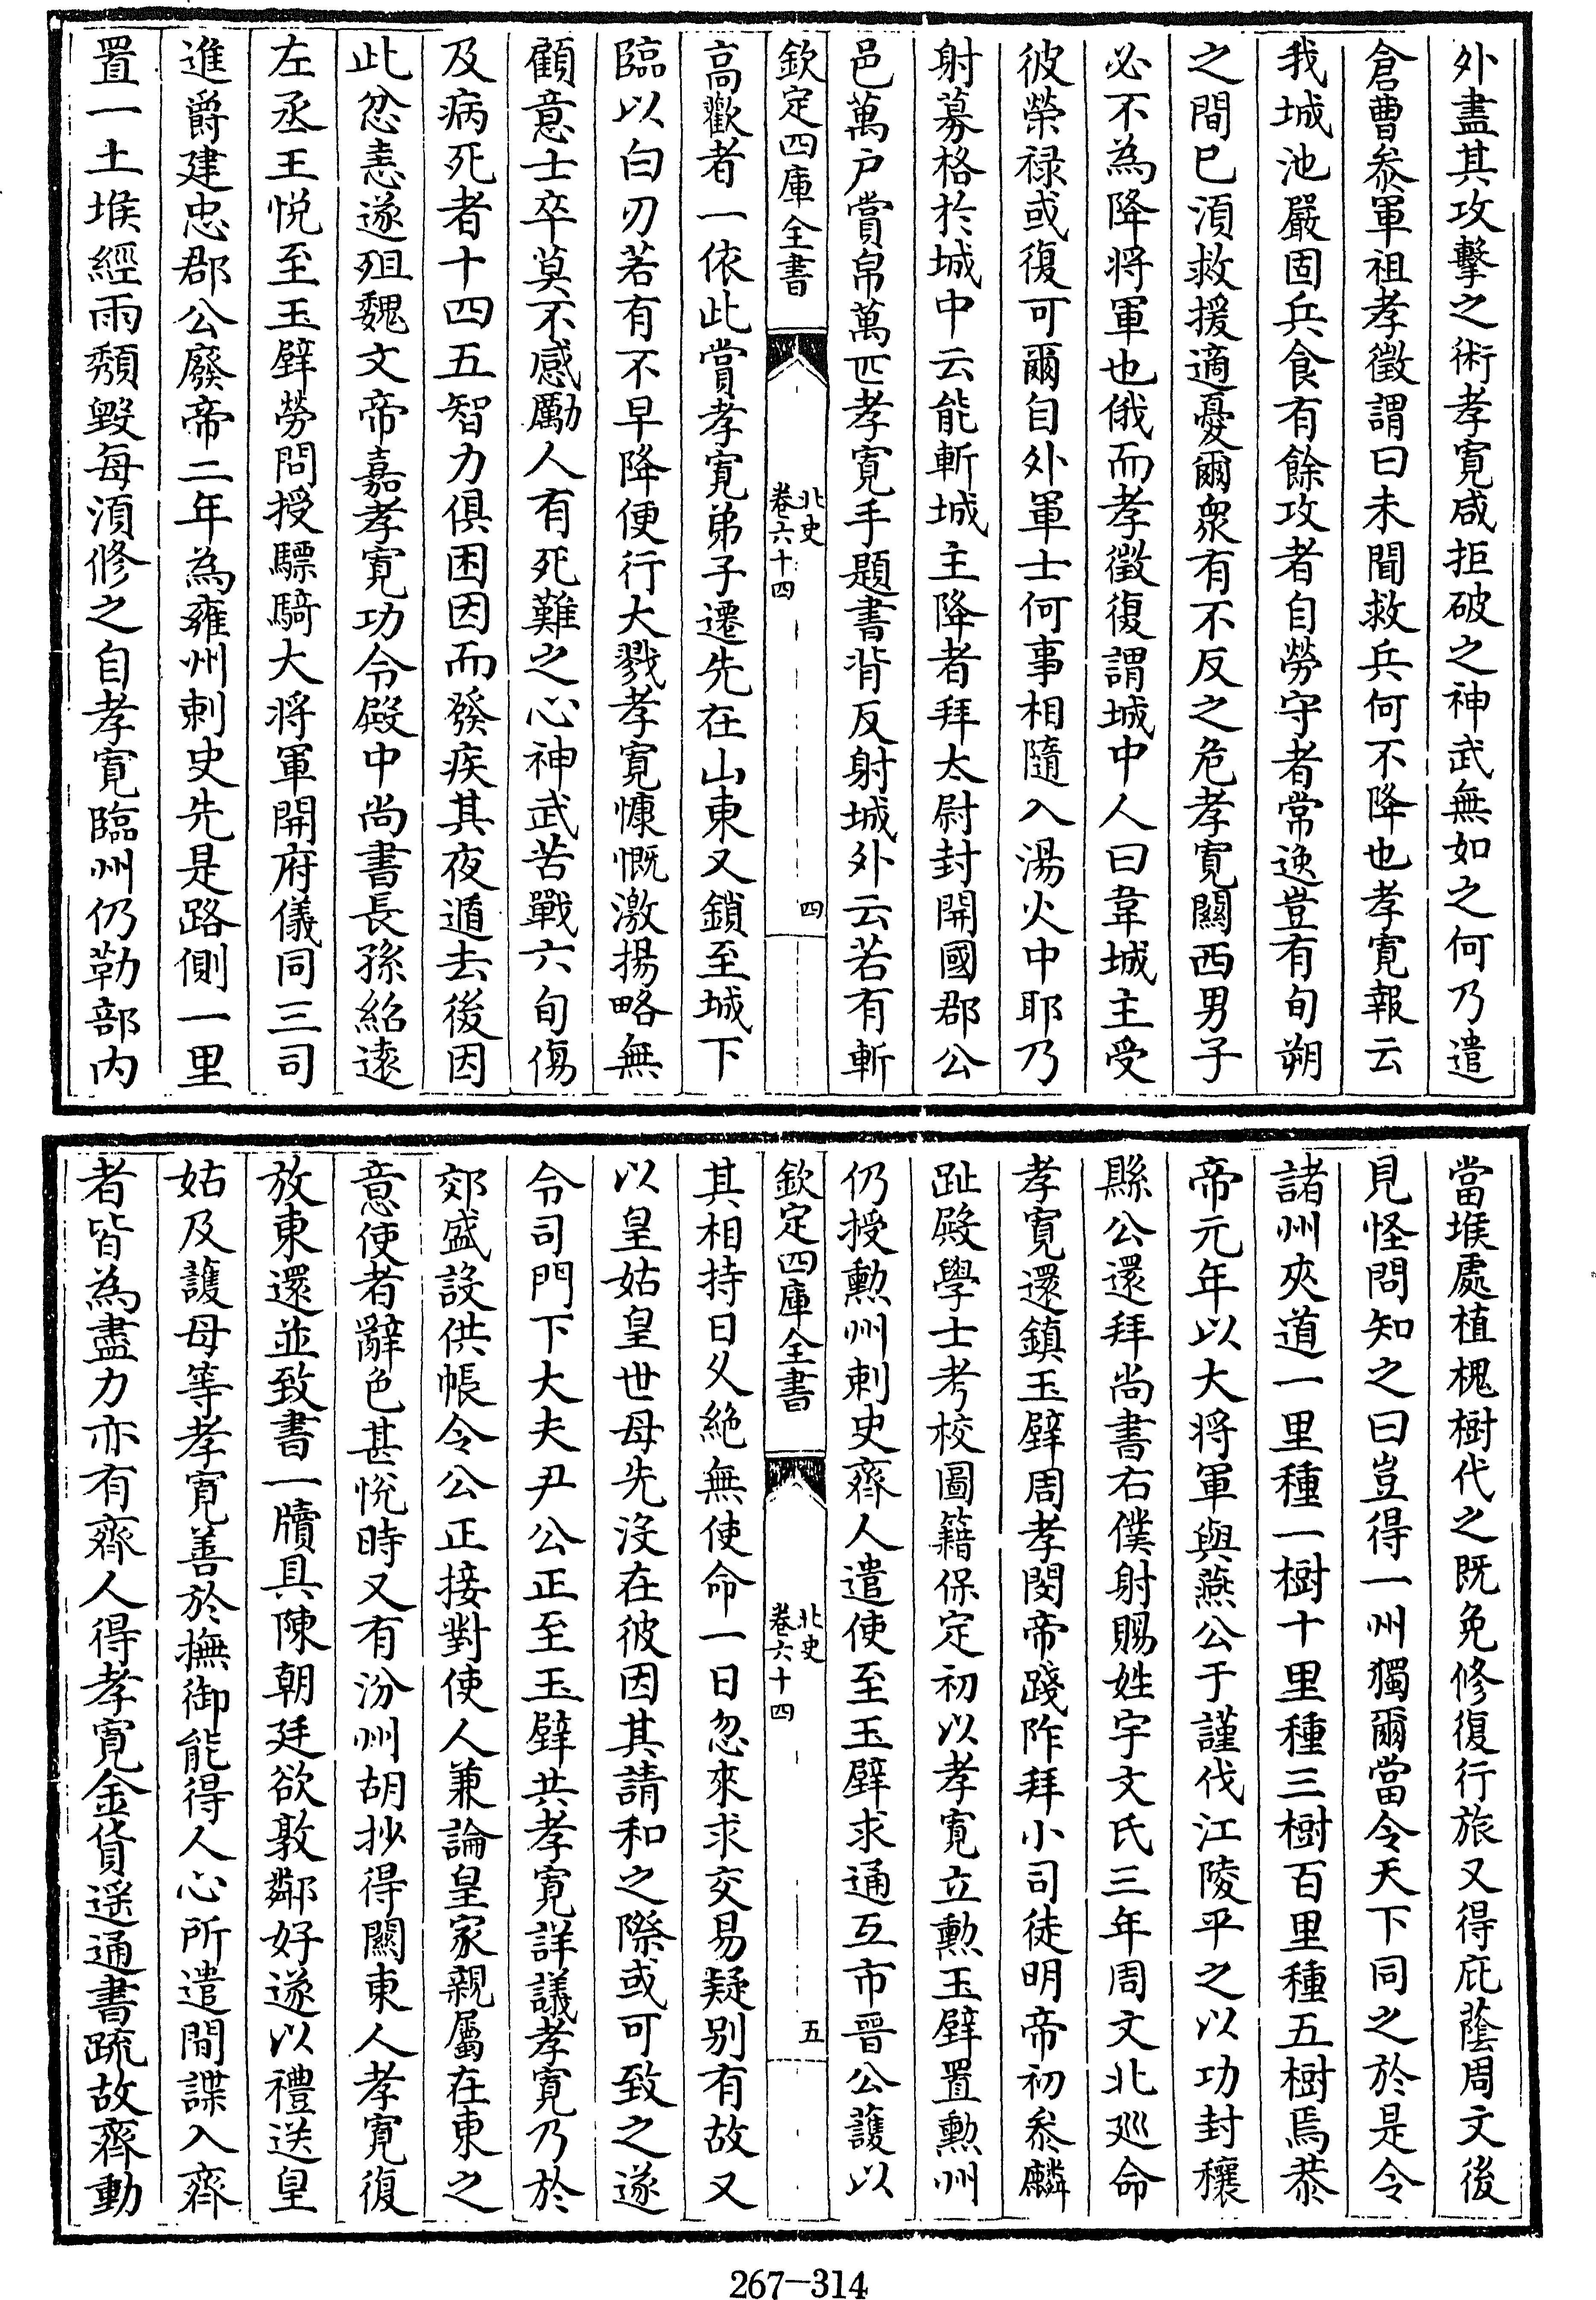 外盡其攻擊之術孝寛咸拒破之神武無如之何乃遣
倉曹叅軍祖孝徵謂曰未聞救兵何不降也孝寛報云
我城池嚴固兵食有餘攻者自勞守者常逸豈有旬朔
之間已湏救援適憂爾衆有不反之危孝寛關西男子
必不為降将軍也俄而孝徵復謂城中人曰韋城主受
彼榮禄或復可爾自外軍士何事相隨入湯火中耶乃
射募格於城中云能斬城主降者拜太尉封開國郡公
邑萬户賞帛萬匹孝寛手題書背反射城外云若有斬
欽定四庫全書
北史
卷六十四
四
高歡者一依此賞孝寛弟子遷先在山東又鎖至城下
臨以白刃若有不早降便行大戮孝寛慷慨激揚略無
顧意士卒莫不感勵人有死難之心神武苦戰六旬傷
及病死者十四五智力俱困因而發疾其夜遁去後因
此忿恚遂殂魏文帝嘉孝寛功令殿中尚書長孫紹遠
左丞王悦至玉壁勞問授驃騎大将軍開府儀同三司
進爵建忠郡公廢帝二年為雍州刺史先是路側一里
置一土堠經雨頽毁每湏修之自孝寛臨州仍勒部内
當堠處植槐樹代之既免修復行旅又得庇蔭周文後
見怪問知之曰豈得一州獨爾當令天下同之於是令
諸州夾道一里種一樹十里種三樹百里種五樹焉恭
帝元年以大将軍與燕公于謹伐江陵平之以功封穰
縣公還拜尚書右僕射賜姓宇文氏三年周文北廵命
孝寛還鎮玉壁周孝閔帝踐阼拜小司徒明帝初叅麟
趾殿學士考校圖籍保定初以孝寛立勲玉壁置勲州
仍授勲州刺史齊人遣使至玉壁求通互市晉公護以
欽定四庫全書
北史
卷六十四
五
其相持日久絶無使命一日忽來求交易疑别有故又
以皇姑皇世母先沒在彼因其請和之際或可致之遂
令司門下大夫尹公正至玉壁共孝寛詳議孝寛乃於
郊盛設供帳令公正接對使人兼論皇家親屬在東之
意使者辭色甚悦時又有汾州胡抄得關東人孝寛復
放東還並致書一牘具陳朝廷欲敦鄰好遂以禮送皇
姑及護母等孝寛善於撫御能得人心所遣間諜入齊
者皆為盡力亦有齊人得孝寛金貨遥通書疏故齊動
267-314